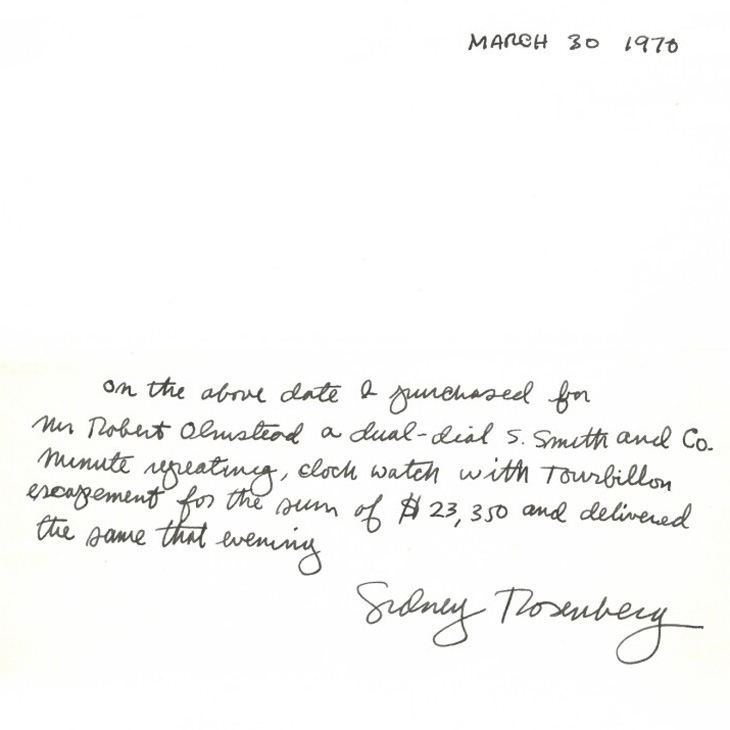 MARCH 30 1970
On the above date I purchased for
Mr Robert Olmstead a dual-dial S. Smith and Co.
Minute repeating, clock watch with Tourbillon
escapement for the sum of $23,350 and delivered
the same that evening
Sidney Rosenberg